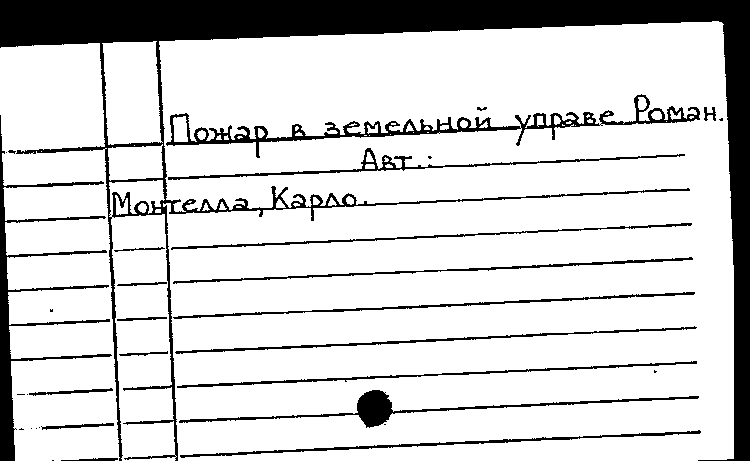 Пожар в земельной управе Роман.
Авт.:
Монтелла, Карло.